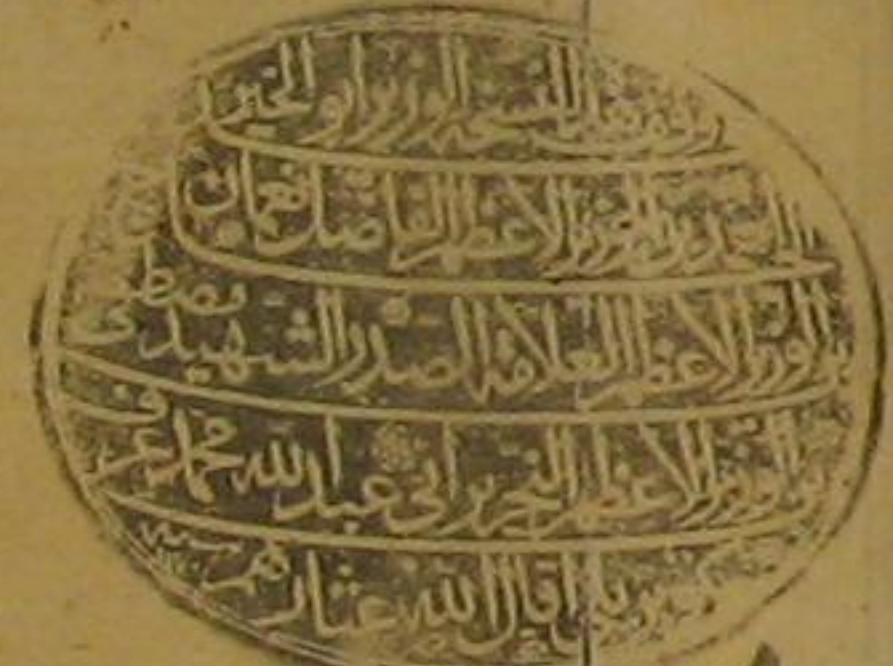 وقف هذه النسخة الوزير ابو الخير احمد
ابن الوزير الاعظم الفاضل نعمان
بن الوزير الاعظم العلامة الصدر الشهيد مصطفى
بن الوزير الاعظم النحرير ابي عبد الله محمد عرف
اقال الله عثارهم